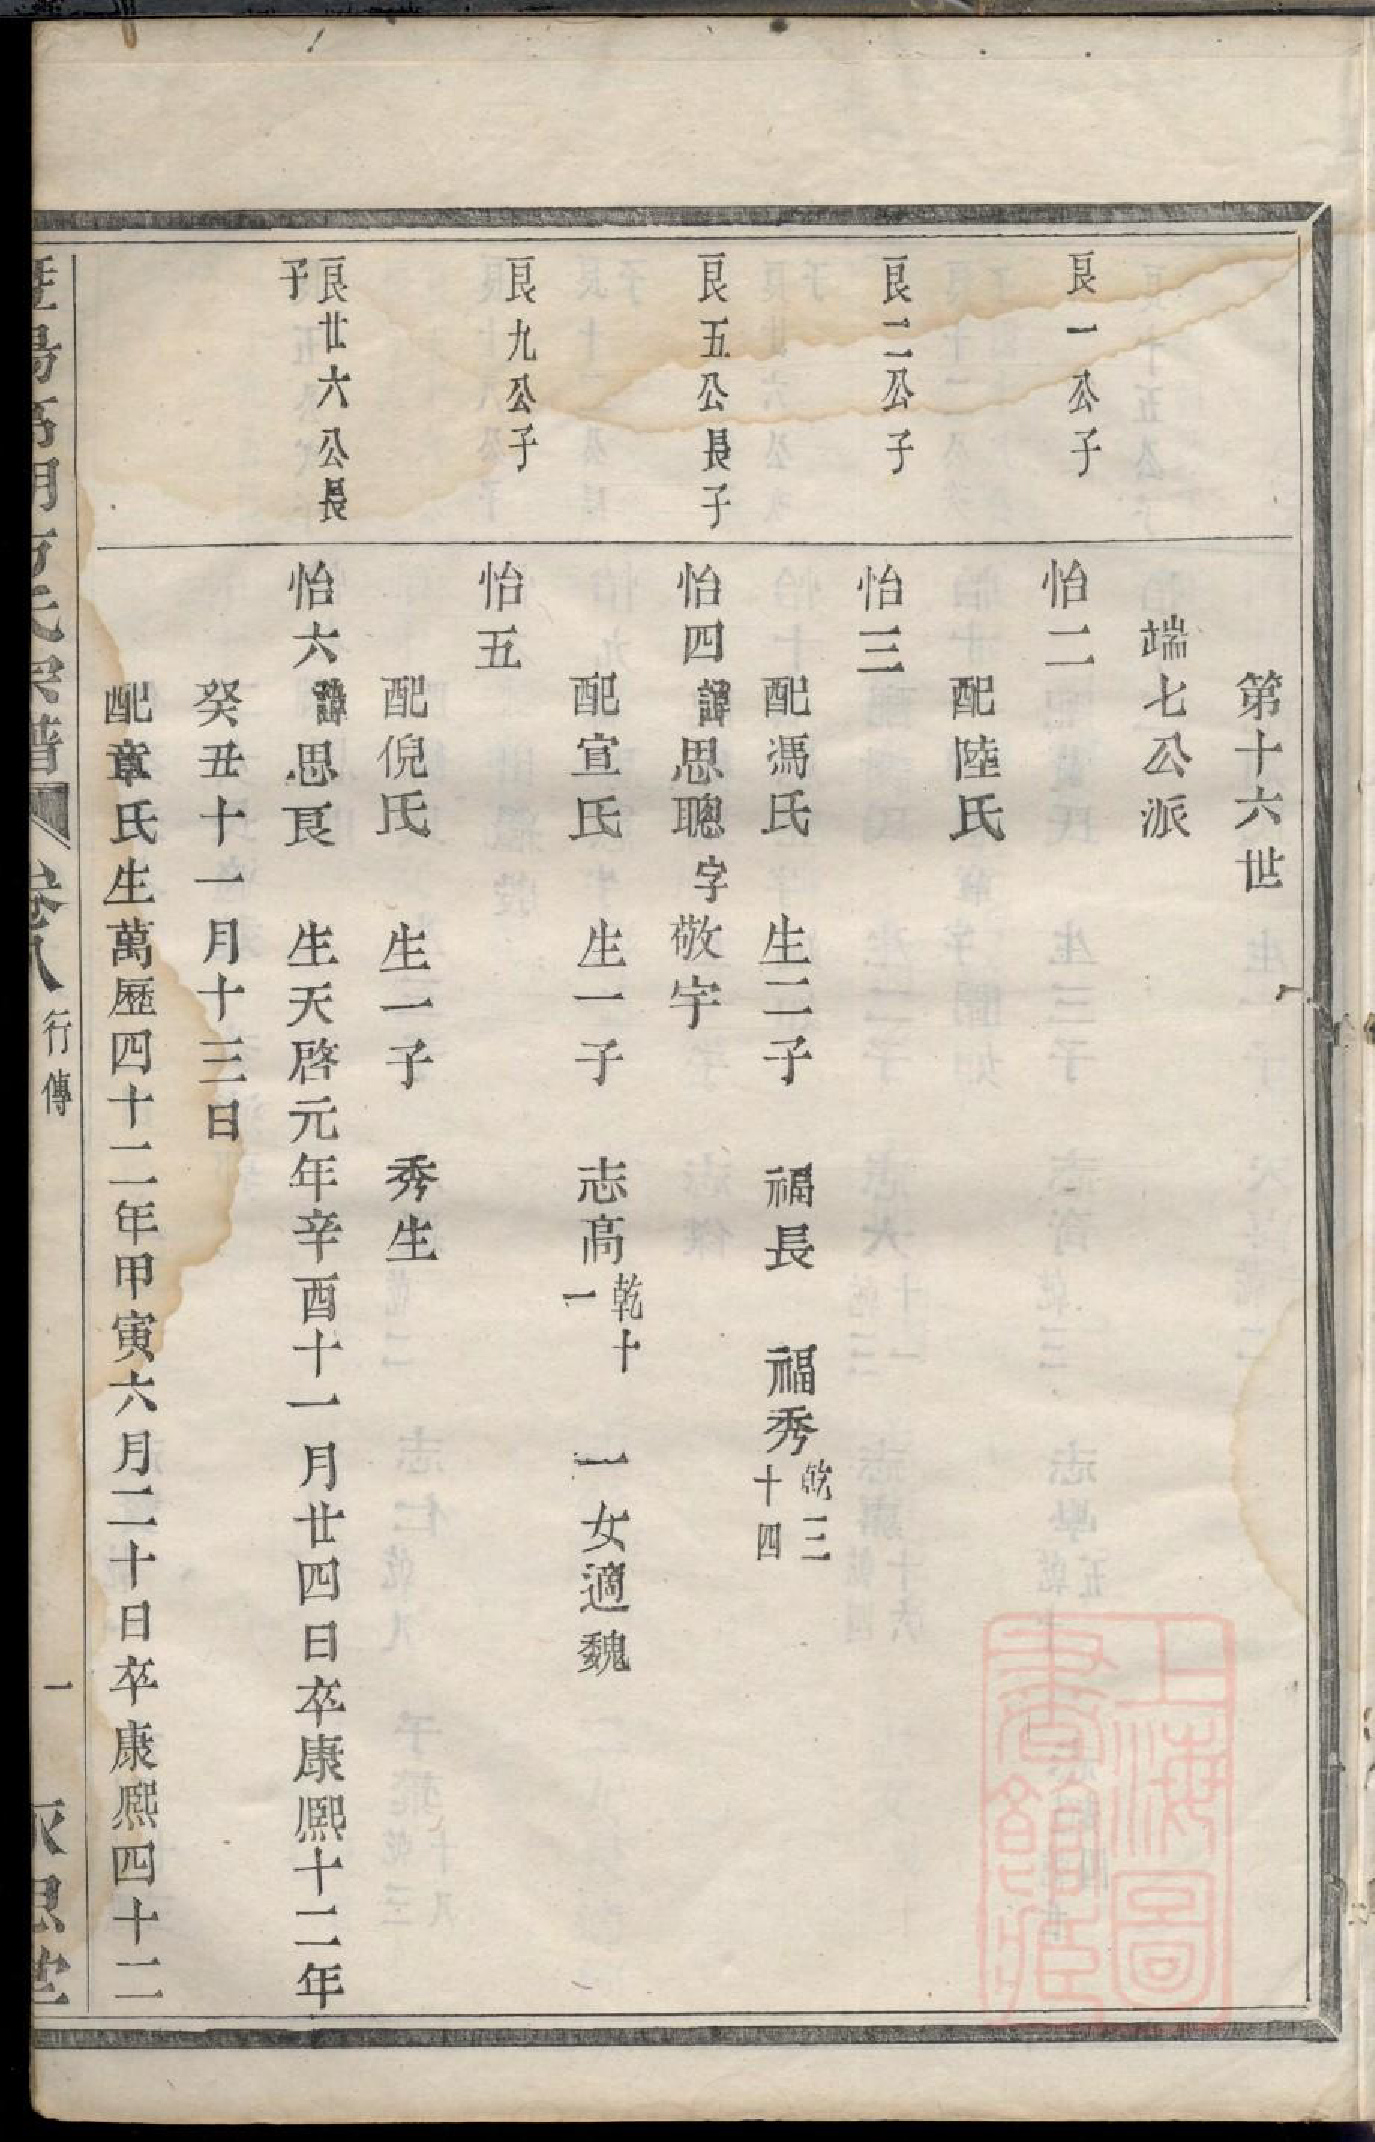 第十六世
端七公派
良一公子
怡二
配陸氏
良二公子
怡三
配馮氏 生二子 福長 福秀 乾三十四
良五公長子
怡四 諱思聰 字敬宇
配宣氏 生一子 志高 乾十一 一女適魏
良九公子
怡五
配倪氏 生一子 秀生
良廿六公長子
怡六 諱思良 生天啓元年辛酉十一月廿四日卒康熙十二年
癸丑十一月十三日
配章氏生萬歷四十二年甲寅六月二十日卒康熙四十二
暨陽高湖方氏宗譜 卷八 行傳 一 永思堂
上海圖書館藏